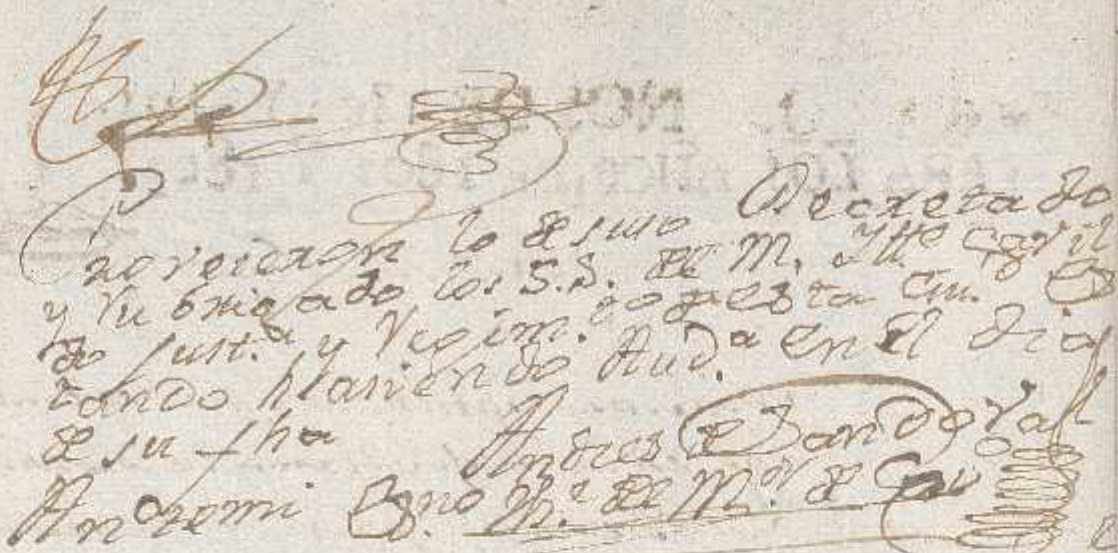 Proveieron lo de suso Decretado
y Rubricado los S.S. del M. Ytte Cavil
do Just.a y Regim.to de esta Ciu.d Es
tando hasiendo Aud.a en el dia
de su fha
Andres de Sandoval
Anttemi Esno de M.or de Cav